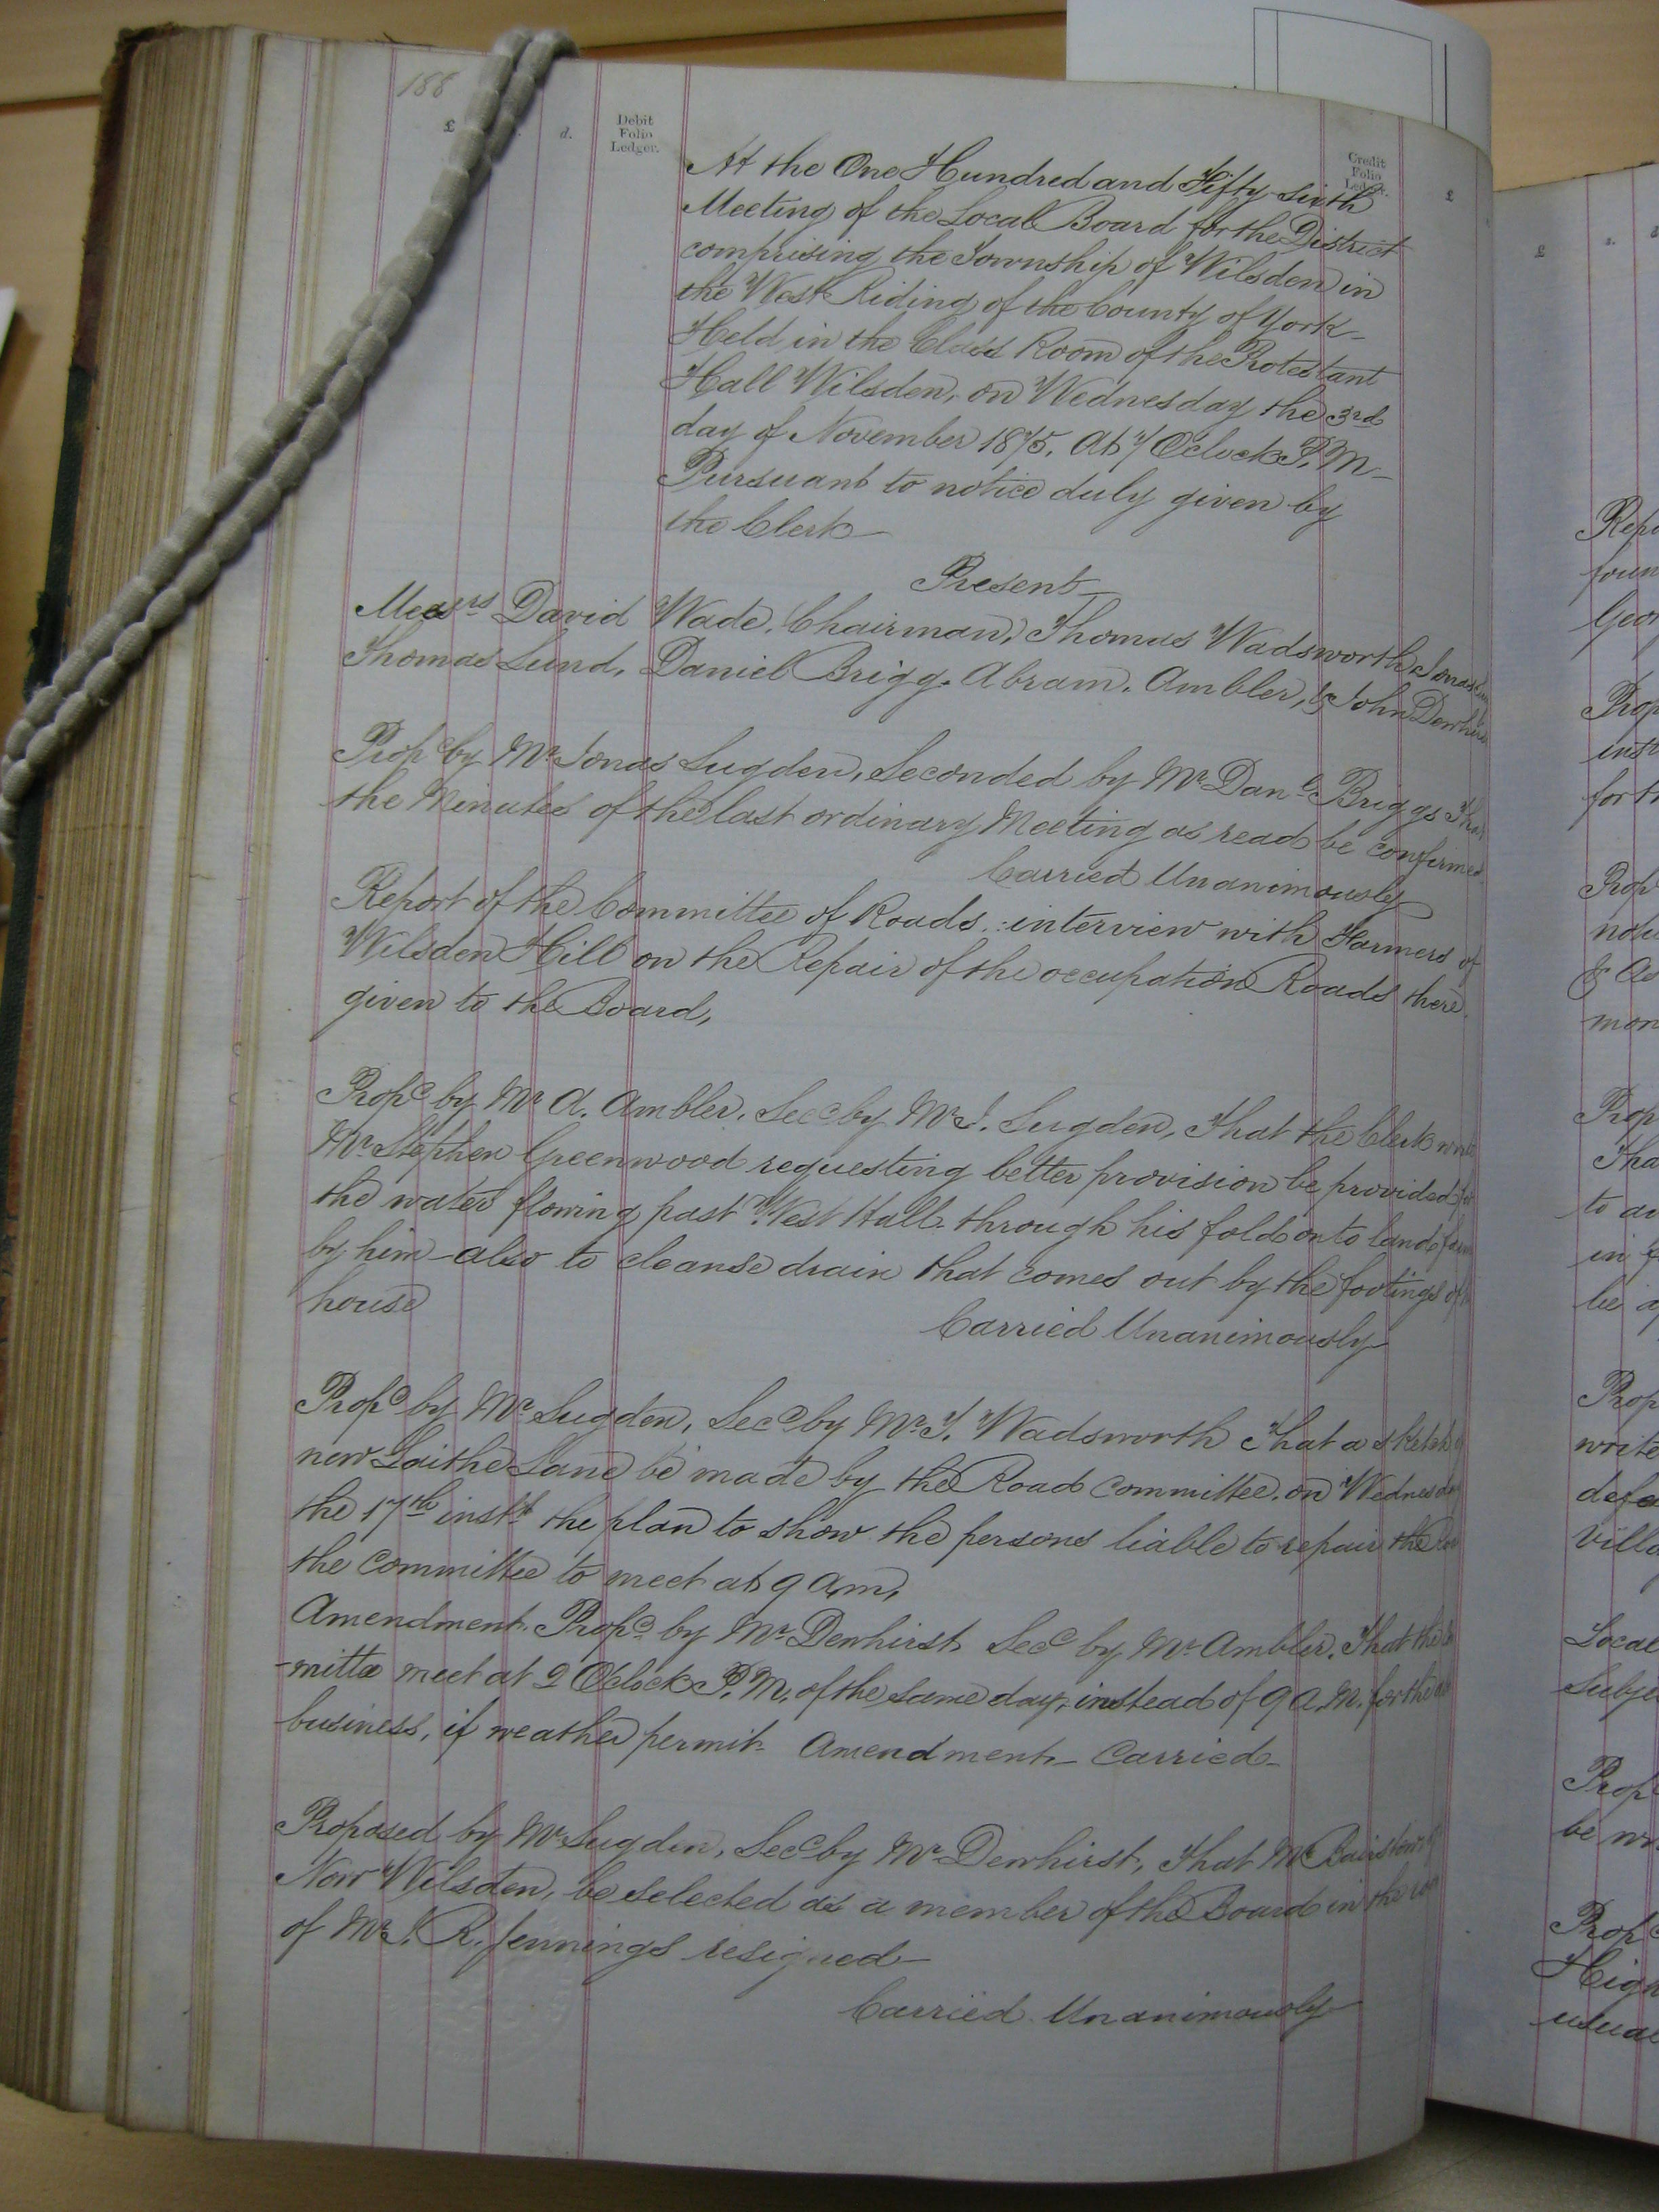 188
£ d. Debit Folio Ledger. Credit Folio Ledger. £
At the One Hundred and Fifty-sixth
Meeting of the Local Board for the District
comprising the Township of Wilsden in
the West Riding of the County of York–
Held in the Class Room of the Protestant
Hall Wilsden, on Wednesday the 3rd
day of November 1875. At 7 O'clock P.M–
Pursuant to notice duly given by
the Clerk—
Present–
Messrs David Wade, Chairman, Thomas Wadsworth, Jonas
Thomas Lund, Daniel Brigg. Abram. Ambler, & John Dewhirst
Propd by Mr Jonas Sugden, Seconded by Mr Danl Briggs That
the Minutes of the last ordinary Meeting as read be confirmed
Carried Unanimously
Report of the Committee of Roads.: interview with Farmers of
Wilsden Hill on the Repair of the occupation Roads there
given to the Board,
Propd by Mr A. Ambler, Secd by Mr J. Sugden, That the Clerk write
Mr Stephen Greenwood requesting better provision be provided for
the water flowing past West Hall through his fold onto land
by him – also to cleanse drain that comes out by the footings of
house
Carried Unanimously
Propd by Mr Sugden, Secd by Mr T. Wadsworth That a sketch of
new Laithe Lane be made by the Road Committee, on Wednesday
the 17th inst the plan to show the persons liable to repair the
the Committee to meet at 9 Am,
Amendment. Propd by Mr Dewhirst Secd by Mr Ambler, That the
-mittee meet at 2 O'Clock P.M. of the same day, instead of 9 A.M. for the
business, if weather permit– Amendment– Carried–
Proposed by Mr Sugden, Secd by Mr Dewhirst, That Mr Bairstow
New Wilsden, be selected as a member of the Board in the
of Mr J. R. Jennings resigned–
Carried Unanimously
£ s.